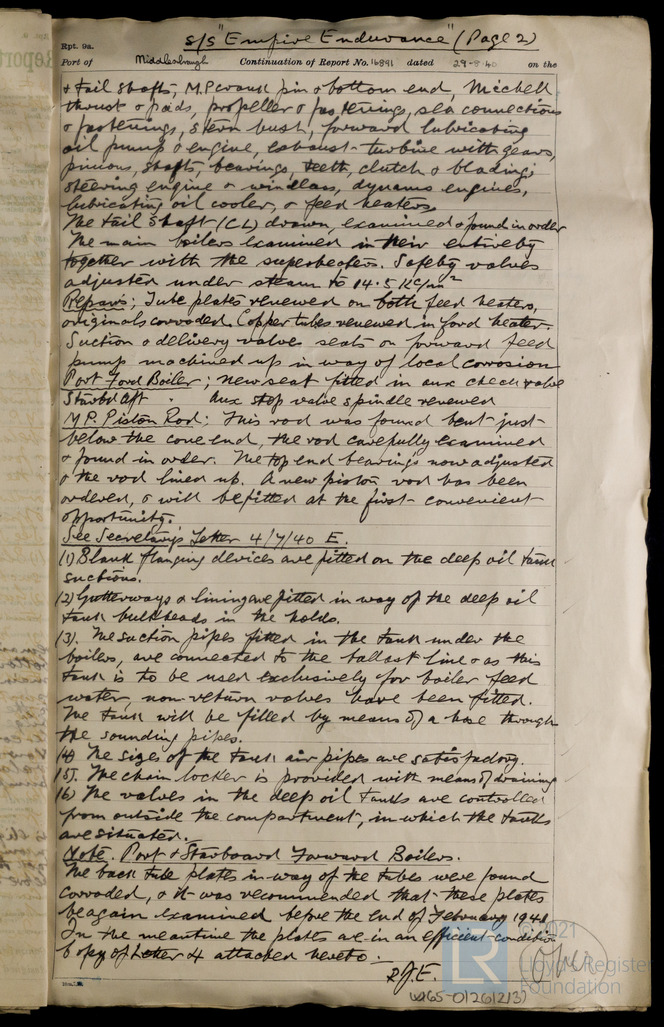 S/S "Empire Endurance" (Page 2)
Rpt. 9a.
Port of Middlesbrough Continuation of Report No. 16891 dated 29-8-40 on the
& tail shafts, M.P. crank pin & bottom end, Michell
thrust & pads, propeller & fastenings, sea connections
& fastenings, stern bush, forward lubricating
oil pump & engine, exhaust-turbine with gears,
pinions, shafts, bearings, teeth, clutch & blading;
steering engine & windlass, dynamo engines,
lubricating oil cooler, & feed heaters,
The tail shaft (CL) drawn, examined & found in order
The main boilers examined in their entirety
together with the superheaters. Safety valves
adjusted under steam to 14.5 KG/cm²
Repairs; Tube plates renewed on both feed heaters,
originals corroded. Copper tubes renewed in ford heater.
Suction & delivery valves seats on forward feed
pump machined up in way of local corrosion
Port Ford Boiler; new seat fitted in aux check valve
Starbd Aft " Aux stop valve spindle renewed
M.P. Piston Rod; This rod was found bent just
below the cone end, the rod carefully examined
& found in order. The top end bearings now adjusted
& the rod lined up. A new piston rod has been
ordered, & will be fitted at the first convenient
opportunity.
See Secretary's Letter 4/7/40 E.
(1) Blank flanging devices are fitted on the deep oil tank
suctions.
(2) Gutterways & lining are fitted in way of the deep oil
tank bulkheads in the holds.
(3). The suction pipes fitted in the tank under the
boilers, are connected to the ballast line & as this
tank is to be used exclusively for boiler feed
water, non-return valves have been fitted.
The tank will be filled by means of a hose through
the sounding pipes.
(4) The sizes of the tank air pipes are satisfactory.
(5). The chain locker is provided with means of draining
(6) The valves in the deep oil tanks are controlled
from outside the compartment, in which the tanks
are situated.
Note. Port & Starboard Forward Boilers.
The back tube plates in way of the tubes were found
corroded, & it was recommended that these plates
be again examined before the end of February 1941
In the meantime the plates are in an efficient condition
Copy of Letter 4 attached hereto.
R.J.E.
© 2021
LR
Lloyd's Register
Foundation
W265-0126(2/3)